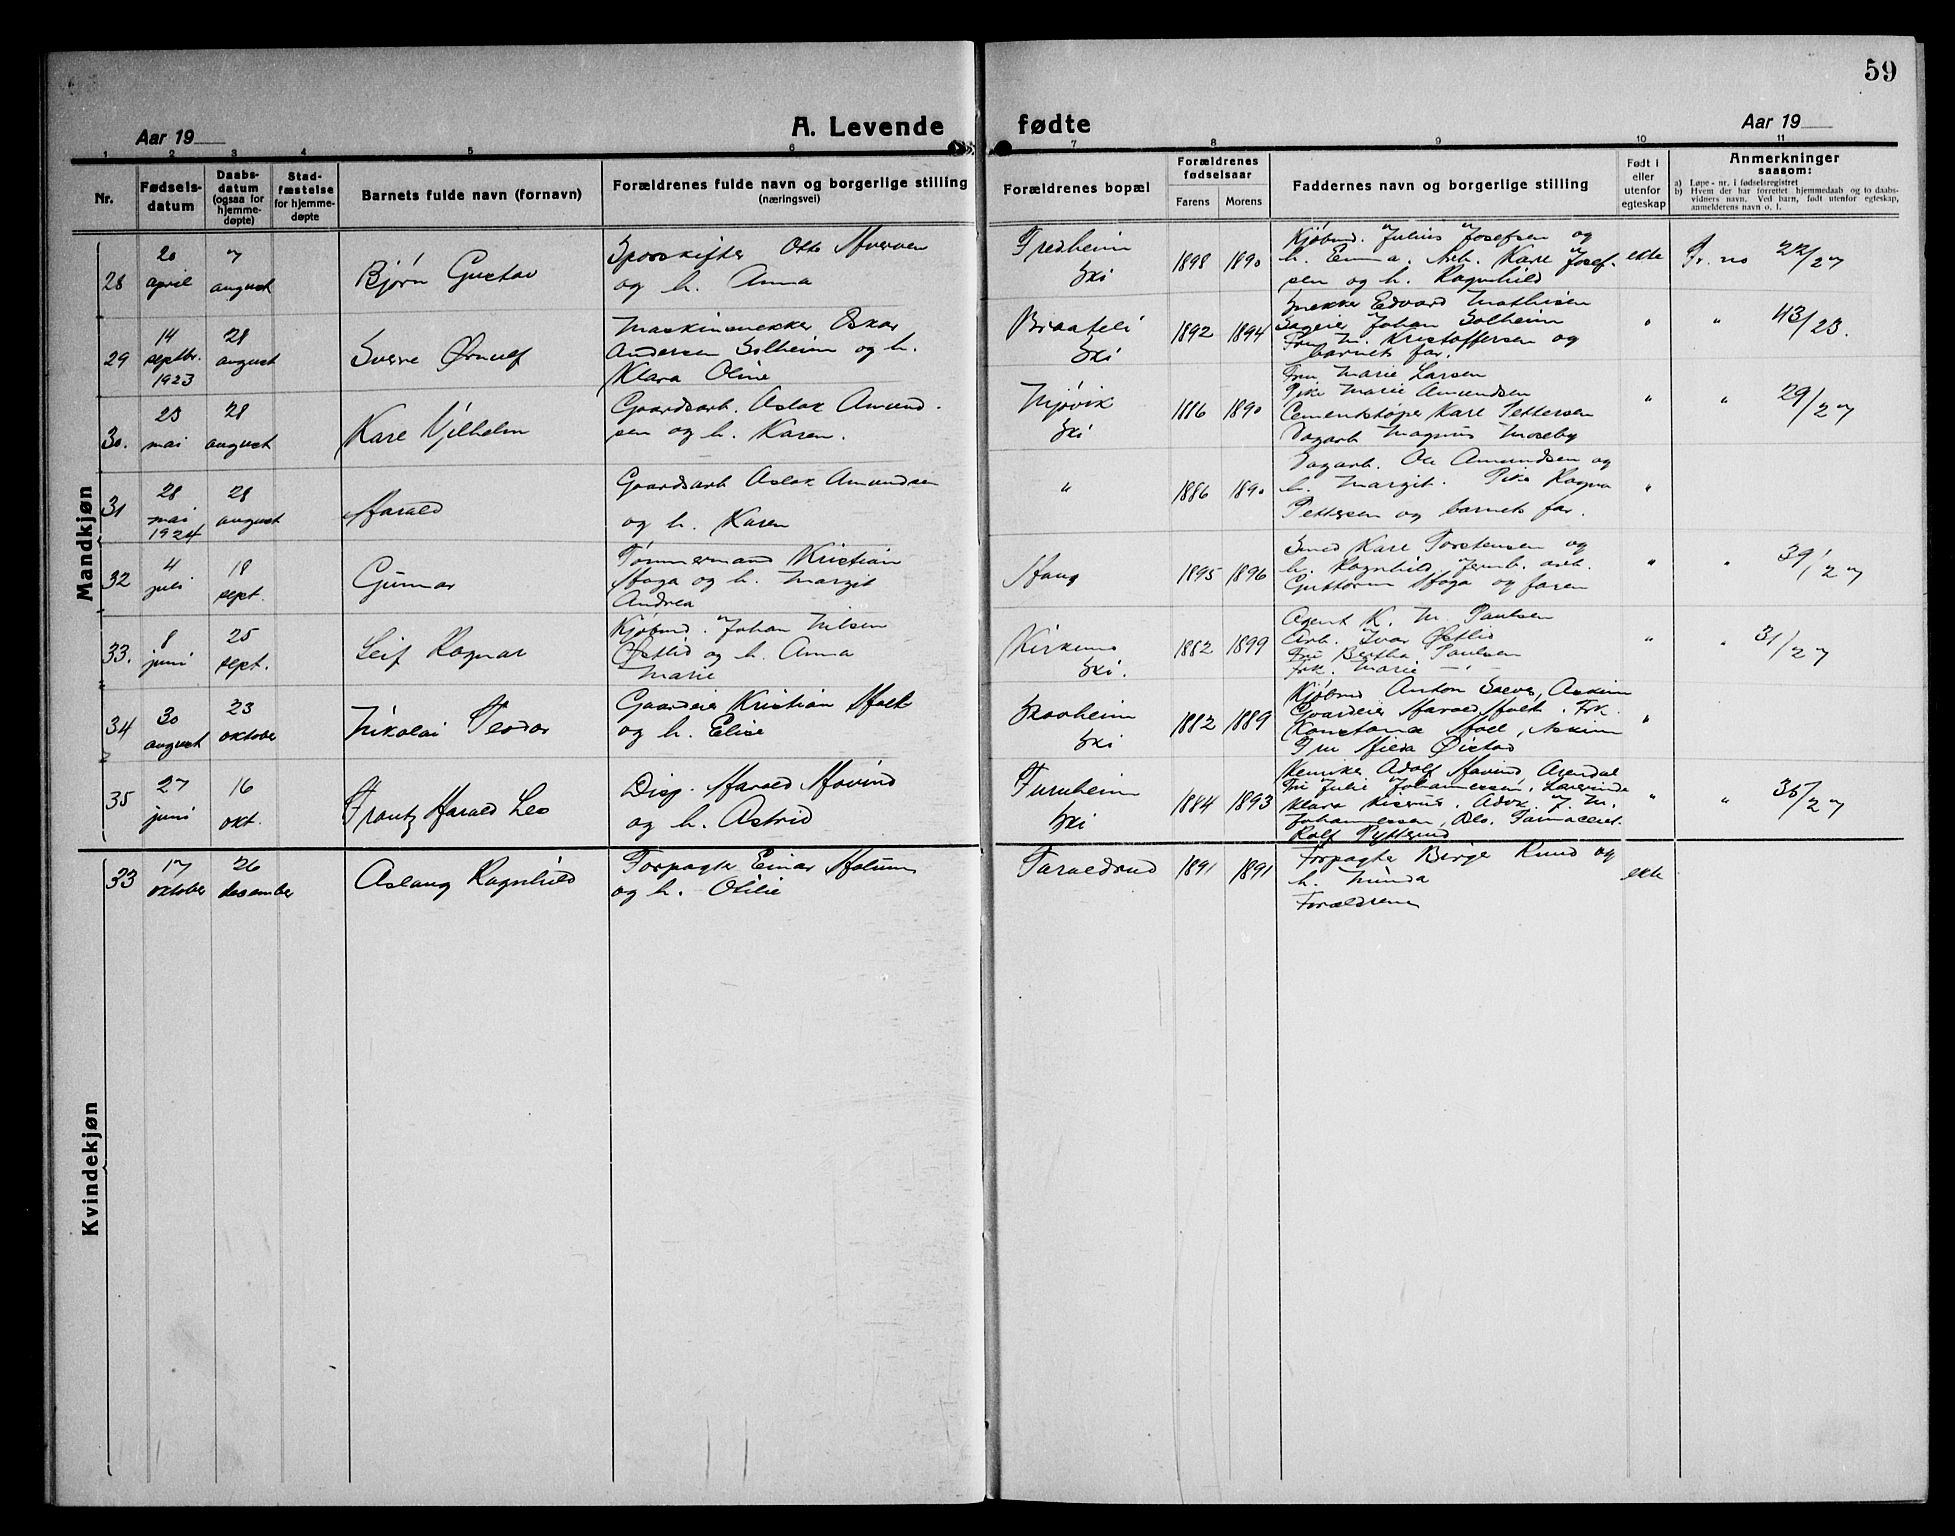 59
Aar 19
A. Levende
fødte
Aar 19
1 2 3 4 5 6 7 8 9 10 11
Nr.
Fødsels-
datum
Daabs-
datum
(ogsaa for
hjemme-
døpte)
Stad-
fæstelse
for hjemme-
døpte
Barnets fulde navn (fornavn)
Forældrenes fulde navn og borgerlige stilling
(næringsvei)
Forældrenes bopæl
Forældrenes
fødselsaar
Farens Morens
Faddernes navn og borgerlige stilling
Født i
eller
utenfor
egteskap
Anmerkninger
saasom:
a) Løpe - nr. i fødselsregistret
b) Hvem der har forrettet hjemmedaab og to daabs-
vidners navn. Ved barn, født utenfor egteskap,
anmelderens navn o. l.
Mandkjøn
28
20
april
7
august
Bjørn Gustav
Sporskifter Otto
og h. Anna
Fredheim
Ski
1898 1890
Kjøbmd. Julius Josefsen og
h. Emma. Arb. Kare Josef-
sen og h. Ragnhild
ekte
Pr. no 22/27
29
14
septbr.
1923
28
august
Sverre Ørnulf
Maskinsnekker Oskar
Andersen Solheim og h.
Klara Oline
Braateli
Ski
1892 1894
Snekker Edvard Mathisen
Sageier Johan Solheim
Fru M. Kristoffersen og
barnets far.
"
" 43/23.
30.
23
mai
28
august
Kare Vilhelm
Gaardsarb. Aslak Amund-
sen og h. Karen.
Mjøvik
Ski
1886 1890
Fru Marie Larsen
Pike Marie Amundsen
Cementstøper Kare Pettersen
Dagarb Magnus Moseby
"
" 29/27
31
28
mai
1924
28
august
Harald
Gaardsarb Aslak Amundsen
og h. Karen
"
1886 1890
Dagarb. Ole Amundsen og
h. Margit. Pike Ragna
Pettersen og barnets far.
"
32
4
juli
18
sept.
Gunnar
Tømmermand Kristian
Haga og h. Margit
Andrea
Haug
1895 1896
Smed Kare Torstensen og
h. Ragnhild, Jernb. arb.
Guttorm Haga og faren
"
" 39/27
33.
8
juni
25
sept.
Leif Ragnar
Kjøbmd. Johan Nilsen
Østlid og h. Anna
Marie
Kirkemo
Ski.
1882 1899
Agent K. M. Paulsen
Arb. Ivar Østlid
Fru Bertha Paulsen
Frk. Marie — " —
"
" 31/27
34
30
august
23
oktober
Nikolai Teodor
Gaardeier Kristian Holt
og h. Elise
Skovheim
Ski
1882 1889
Kjøbmd Anton, Askim
Gaardeier Harald Holt. Frk.
Konstanse, Askim
Fru Hilda Øistad
"
35
27
juni
16
okt.
Frantz Harald Leo
Disp. Harald Hovind
og h. Astrid
Furuheim
Ski
1884 1893
Adolf Hovind, Arendal
Fru Julie Johannessen,
Klara. Advk. J. M.
Johannessen, Oslo. Farmaceut
Rolf
"
" 35/27
Kvindekjøn
33
17
oktober
26
desember
Aslaug Ragnhild
Forpagter Einar Holum
og h. Otilie
Taraldrud
1891 1891
Forpagter Birger Ruud og
h. Minda
Forældrene
ekte